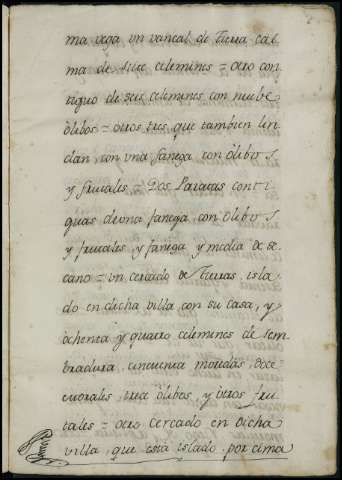 ma vega un vancal de tierra cal
ma de siete celemines = otro con
tiguo de seis celemines con nuebe
òlibos = otros tres que tambien lin
dan, con una fanega con òlibos
y frutales = Dos Paratas conti
guas de una fanega con òlibos
y frutales y fanega y media de se
cano = un cercado de Tierras, isla
do en dicha villa con su casa, y
òchenta y quatro celemines de sem
bradura, cincuenta moredas, doce
morales, trece òlibos, y òtros fru
tales = otro cercado en dicha
villa, que està islado, por cima